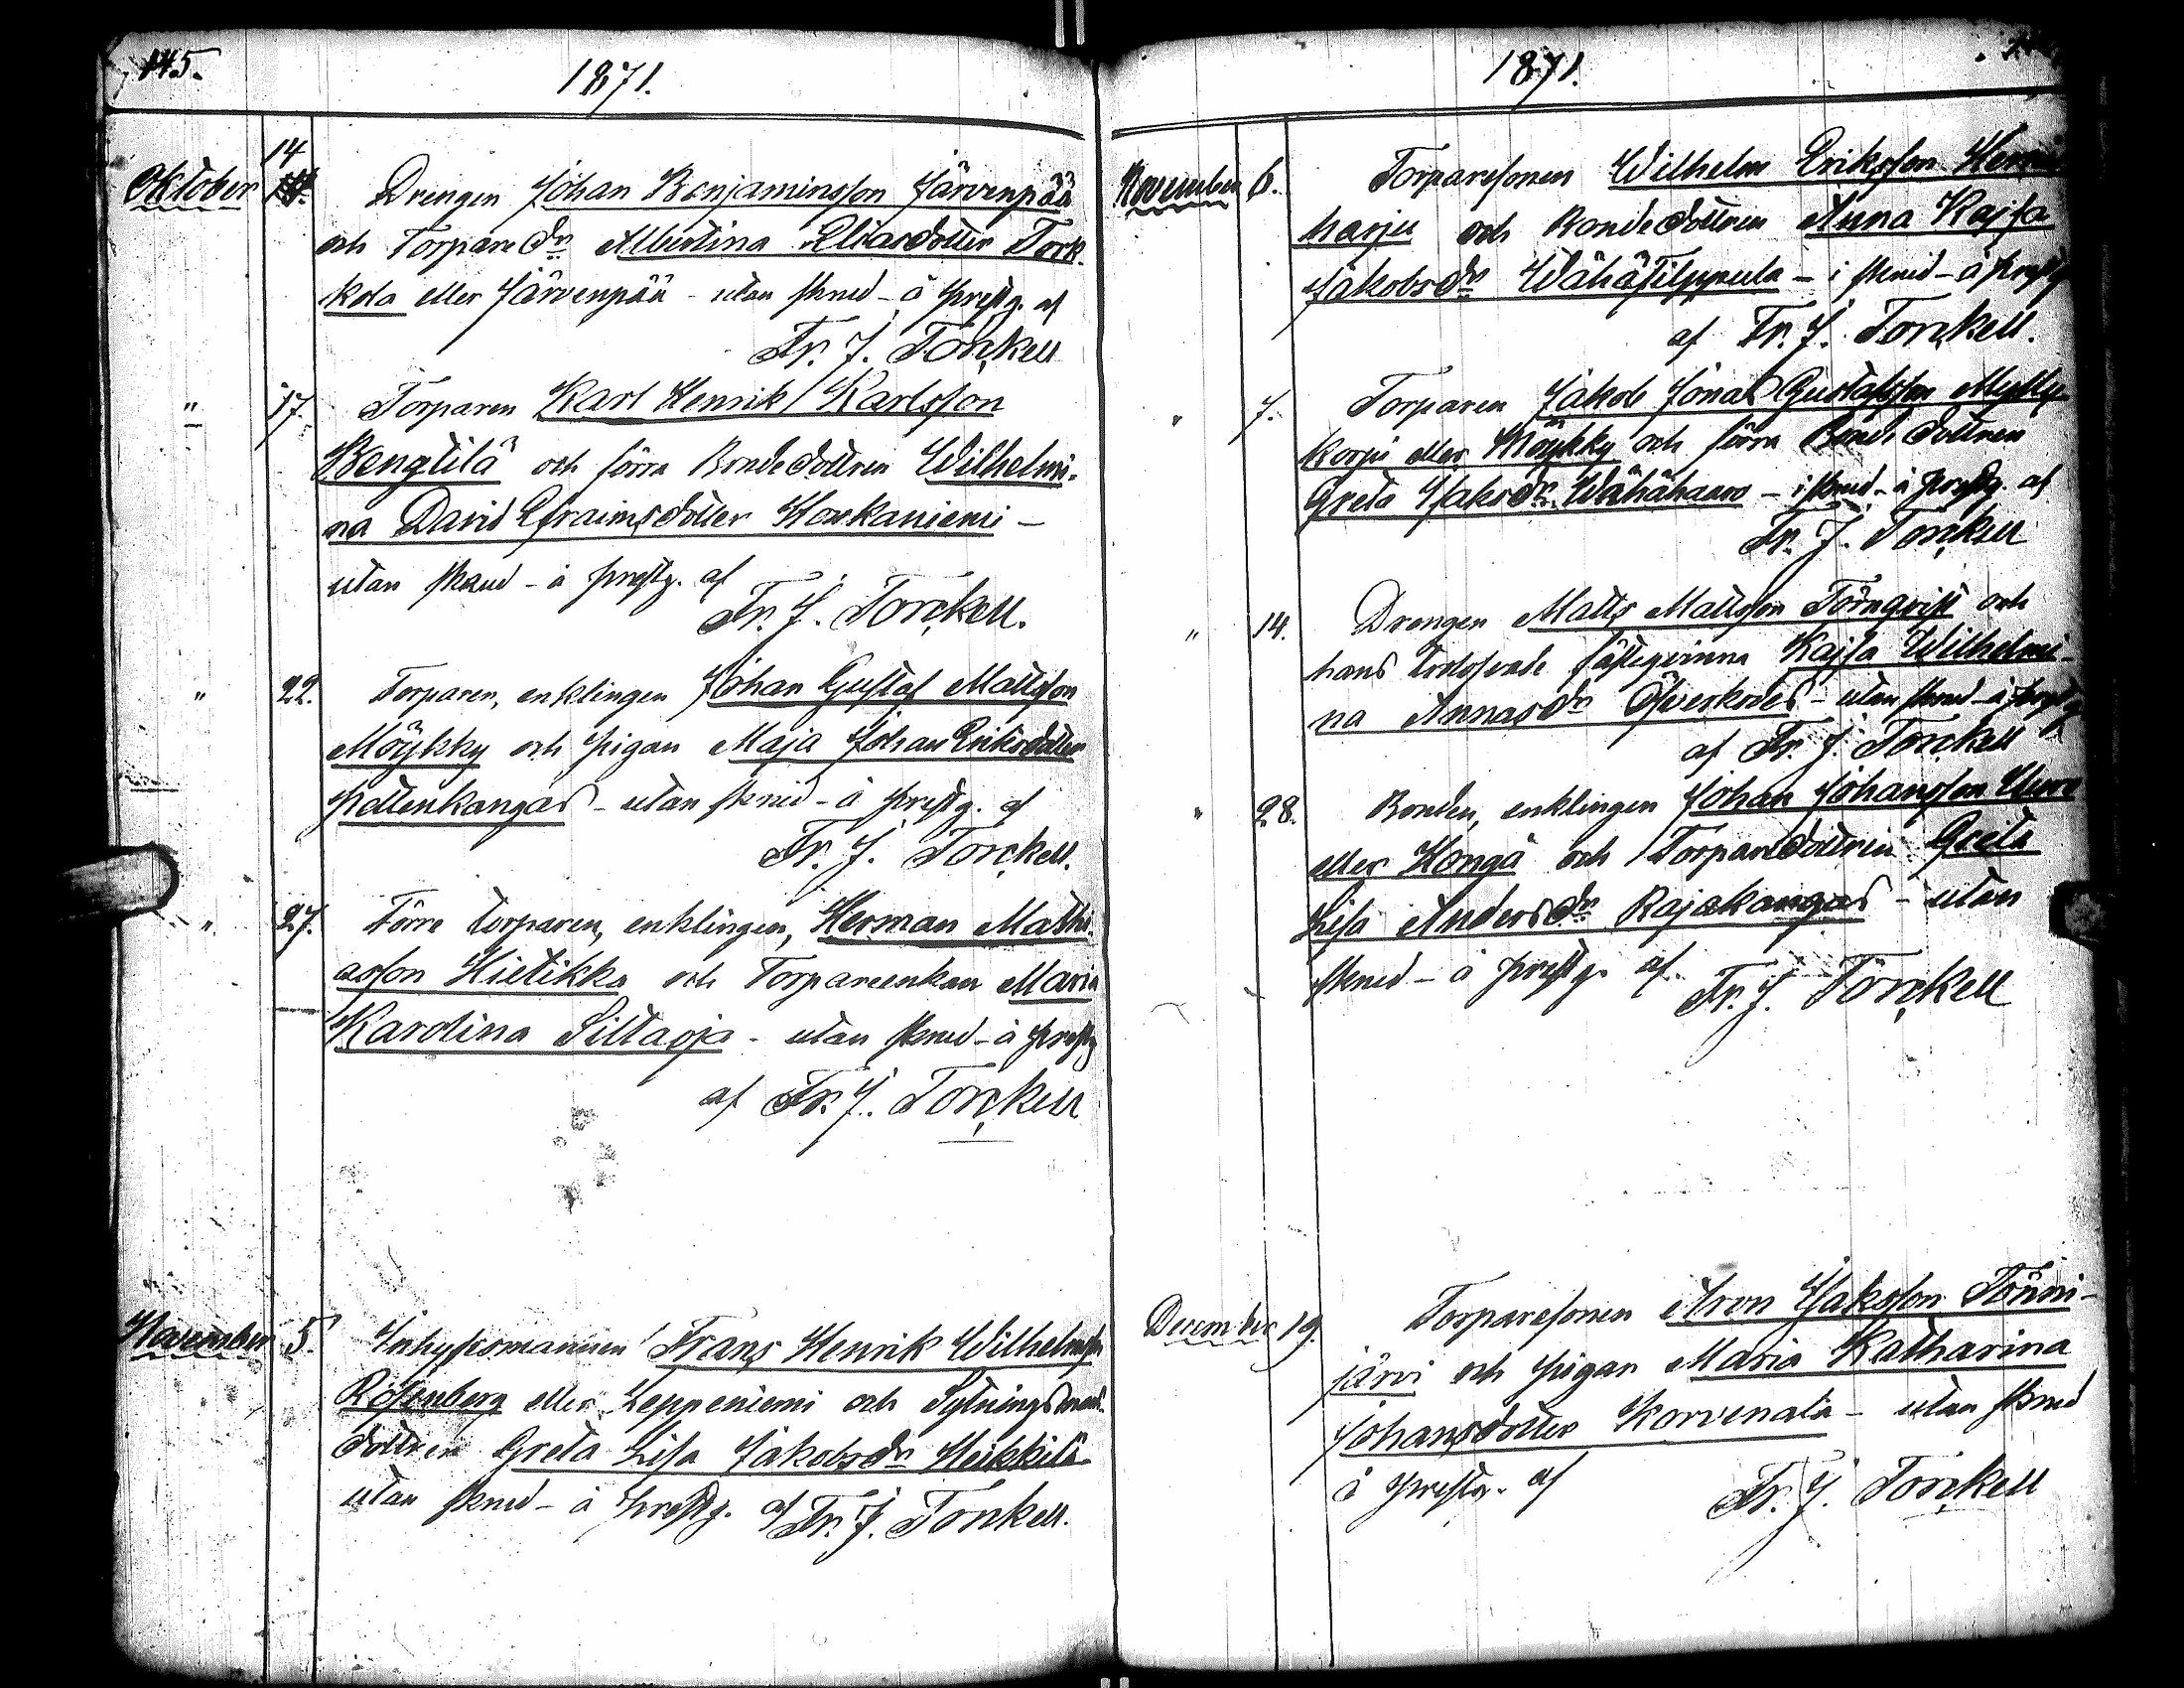 145.
1871.
14
Oktober Drengen Johan Benjaminsson Järvenpää
och Torpare Dr Albertina Eliasdotter Tork-
kola eller Järvenpää - utan skrud - å prestg. af
Fr. J. Torckell
" 17. Torparen Karl Henrik Karlsson
Bengtilä och förra Bondedottren Wilhelmi-
na David Efraimsdotter Koskaniemi -
utan skrud - å prestg. af
Fr. J. Torckell.
" 22. Torparen, enklingen Johan Gustaf Mattsson
Möykky och pigan Maja Johan Eriksdotter
Pottenkangas - utan skrud - å prestg. af
Fr. J. Torckell.
" 27. Förre torparen, enklingen, Herman Mathi-
asson Hietikko och Torpareenkan Maria
Karolina Siltaoja - utan skrud - å prestg
af Fr. J. Torckell
November 5. Inhysesmannen Frans Henrik Wilhelmsson
Rosenberg eller Leppeniemi och Sytnings
dottren Greta Lisa Jakobsdr Heikkilä
utan skrud - å prestg. af Fr. J. Torckell.
1871.
November 6. Torparesonen Wilhelm Eriksson
harju och Bondedottren Anna Kajsa
Jakobsdr Wähäfilppula - i skrud - å prestg
af Fr. J. Torckell.
" 7. Torparen Jakob Jonas Gustafsson Mylly-
korpi eller Möykky och förra Bondedottren
Greta Jaksdr Wähähaaro - i skrud - å prestg. af
Fr. J. Torckell
" 14. Drengen Matts Mattsson Törnqvist och
hans trolofvade fästeqvinna Kajsa Wilhelmi-
na Annasdr Öfverkodes - utan skrud - å prestg
af Fr. J. Torckell
" 28. Bonden, enklingen Johan Johansson
eller Hongä och Torparedottren Greta
Lisa Andersdr Rajakangas - utan
skrud - å prestg. af Fr. J. Torckell
December 19. Torparesonen Aron Jaksson Tönni-
järvi och pigan Maria Katharina
Johansdotter Korvenala - utan skrud
å prestg. af Fr. J. Torckell